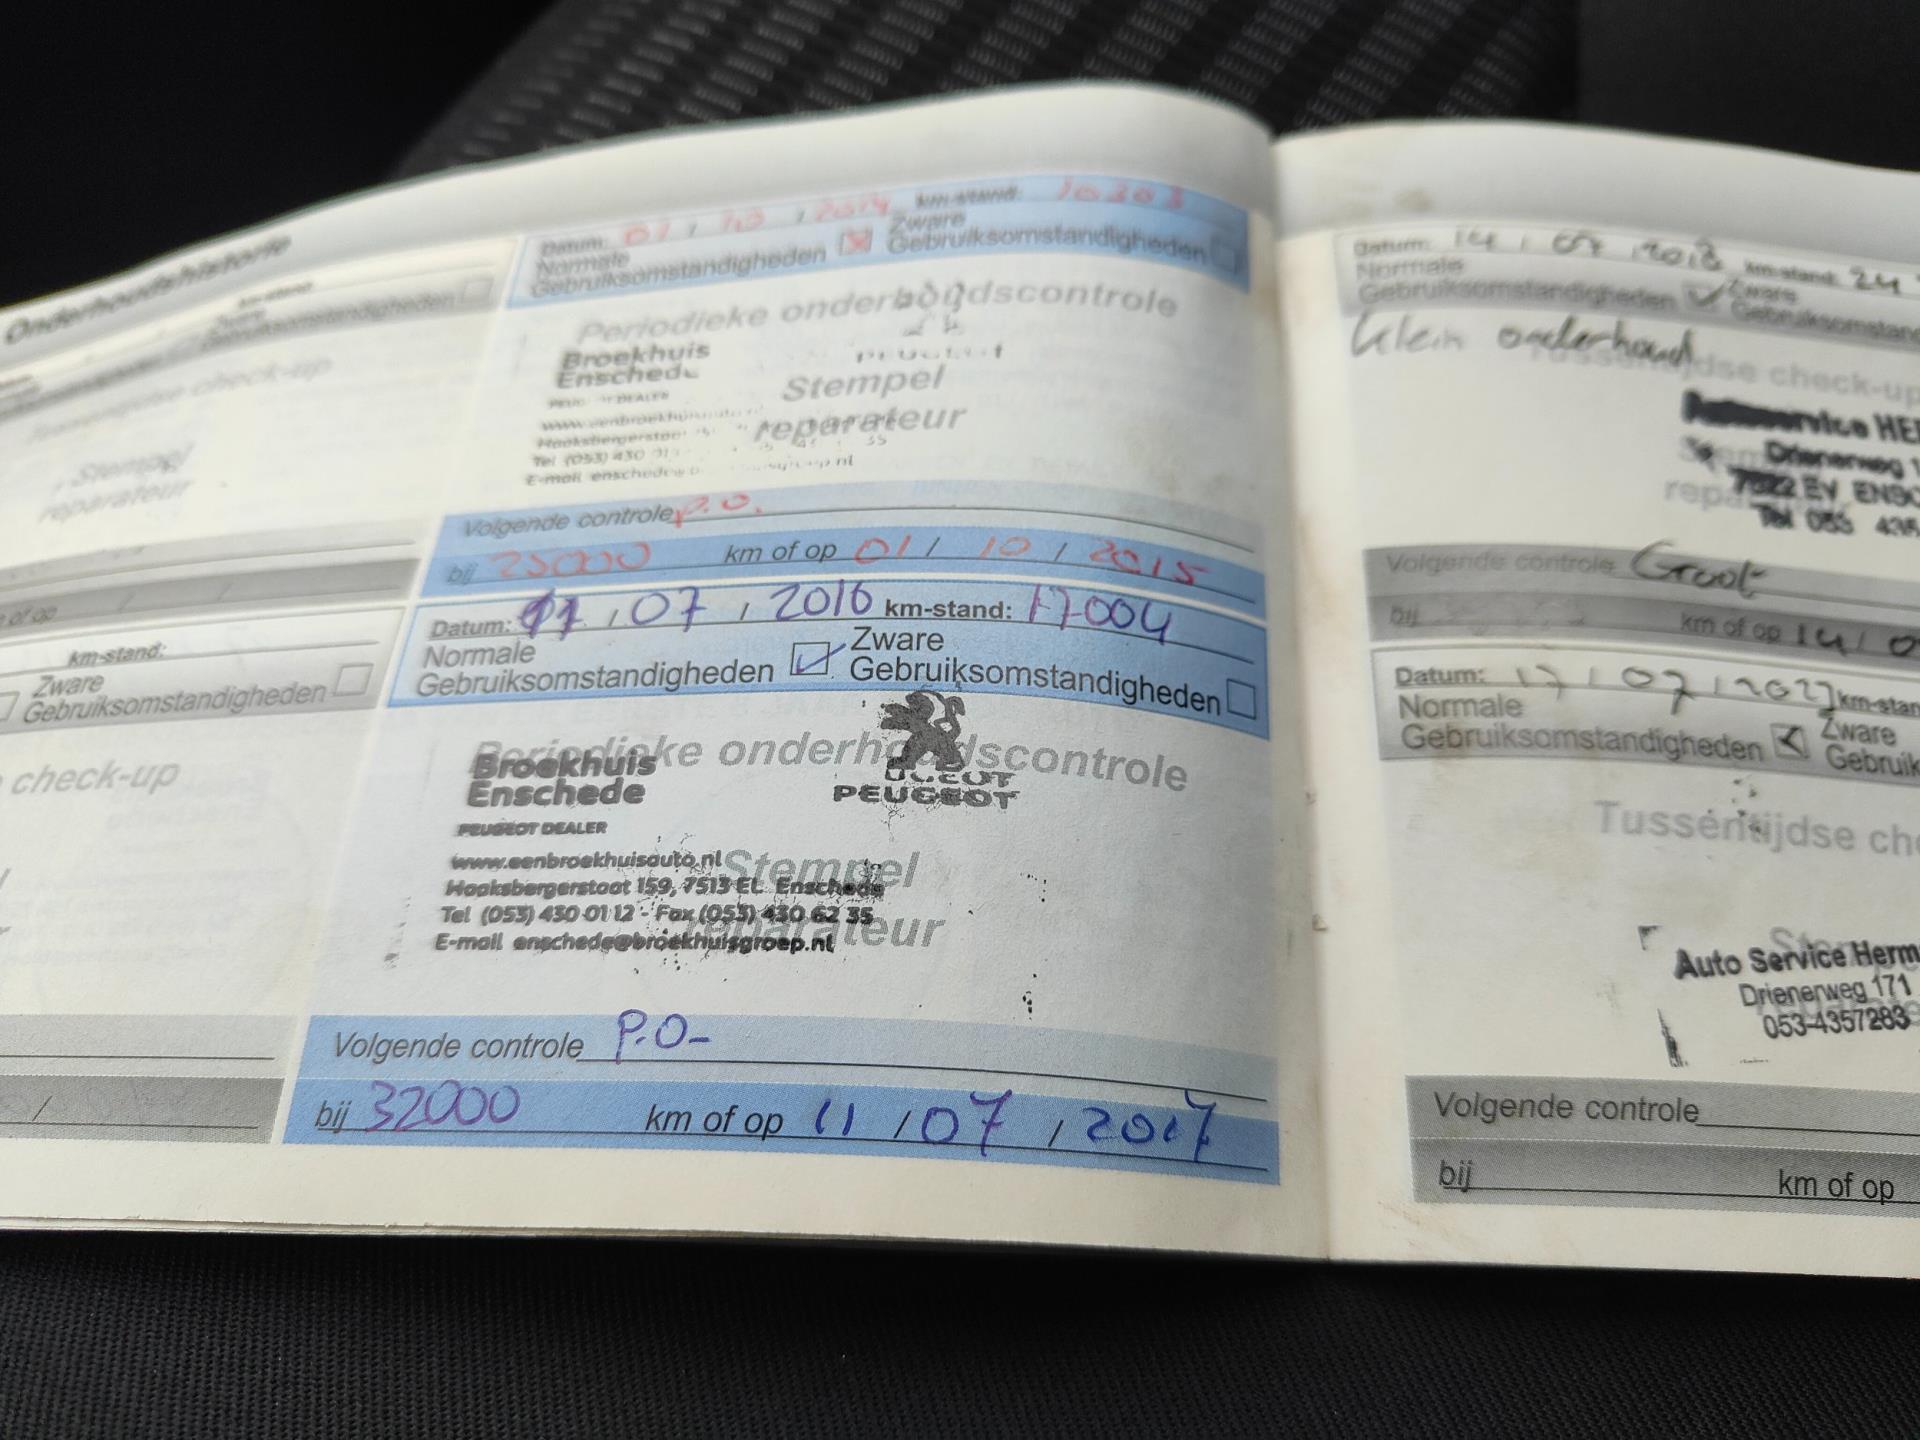 Onderhoudshistorie
km-stand:
Zware
Gebruiksomstandigheden
check-up
Stempel
reparateur
km of op
km-stand:
Zware
Gebruiksomstandigheden
check-up
Datum: 01 / 10 / 2014 km-stand: 10303
Normale Zware
Gebruiksomstandigheden Gebruiksomstandigheden
Periodieke onderhoudscontrole
Broekhuis
Enschede
PEUGEOT
Stempel
reparateur
Tel (053) 430
E-mail enschede
Volgende controle P.O.
bij 25000 km of op 01 / 10 / 2015
Datum: 11 / 07 / 2016 km-stand: 17004
Normale Zware
Gebruiksomstandigheden Gebruiksomstandigheden
Periodieke onderhoudscontrole
Broekhuis
Enschede
PEUGEOT
PEUGEOT DEALER
www.eenbroekhuisauto.nl
Stempel
Haaksbergerstraat 159, 7513 EL Enschede
Tel (053) 430 01 12 - Fax (053) 430 62 35
reparateur
E-mail enschede@broekhuisgroep.nl
Volgende controle P.O-
bij 32000 km of op 11 / 07 / 2017
Datum: 14 / 07 / 2018 km-stand: 24
Normale Zware
Gebruiksomstandigheden
Klein onderhoud
Tussentijdse check-up
Autoservice HER
Drienerweg 1
7522 EV ENSC
Tel 053 435
Volgende controle Groot
bij km of op 14 / 0
Datum: 17 / 07 / 2023 km-stan
Normale Zware
Gebruiksomstandigheden Gebruik
Tussentijdse che
Auto Service Herm
Drienerweg 171
053-4357283
Volgende controle
bij km of op